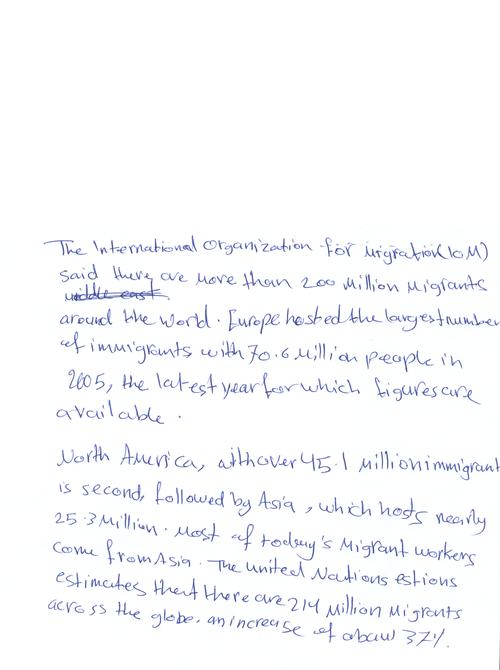 The International Organization for migration (IOM)
said there are more than 200 Million Migrants
middle east
around the world. Europe hosted the largest number
of immigrants with 70.6 Million people in
2005, the latest year for which figures are
available.
North America, with over 45.1 Million immigrant
is second, followed by Asia, which hosts nearly
25.3 Million. Most of today's Migrant workers
come from Asia. The united Nations estions
estimates that there are 214 Million Migrants
across the globe, an increase of abaw 37%.